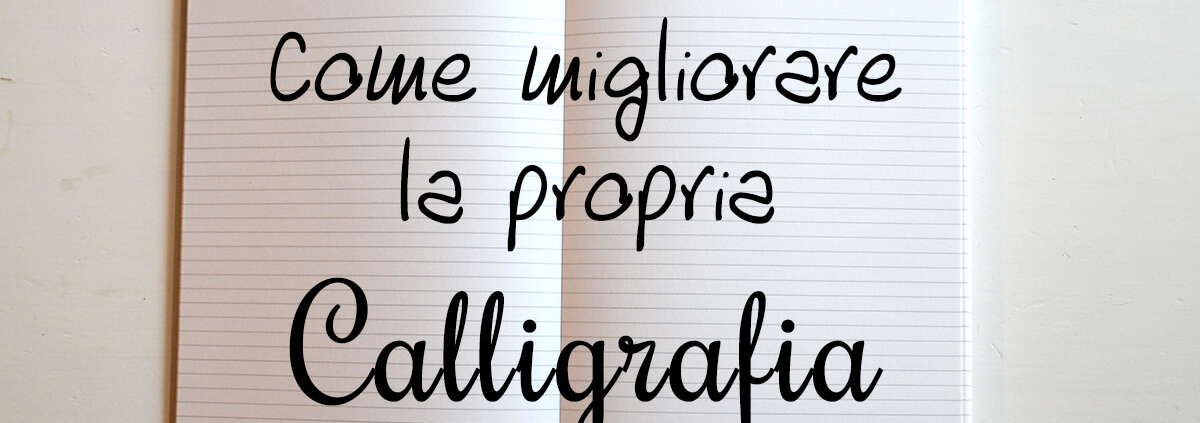 Come migliorare
la propria
Calligrafia